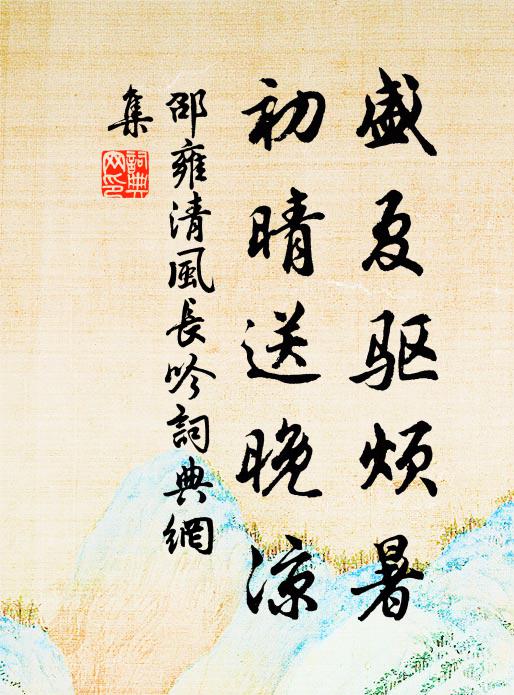 盛夏驱烦暑
初晴送晚凉
邵雍清風長吟詞典網
集
詞典
网印